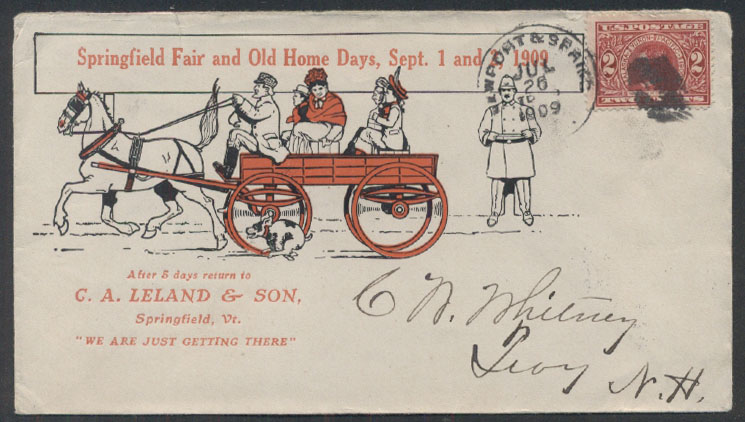 Springfield Fair and Old Home Days, Sept. 1 and 1909
NEWPORT & SPRING
JUL
26
1909
U.S. POSTAGE
2 2
TWO CENTS
After 5 days return to
C. A. LELAND & SON,
Springfield, Vt.
"WE ARE JUST GETTING THERE"
C W. Whitney
Troy N.H.